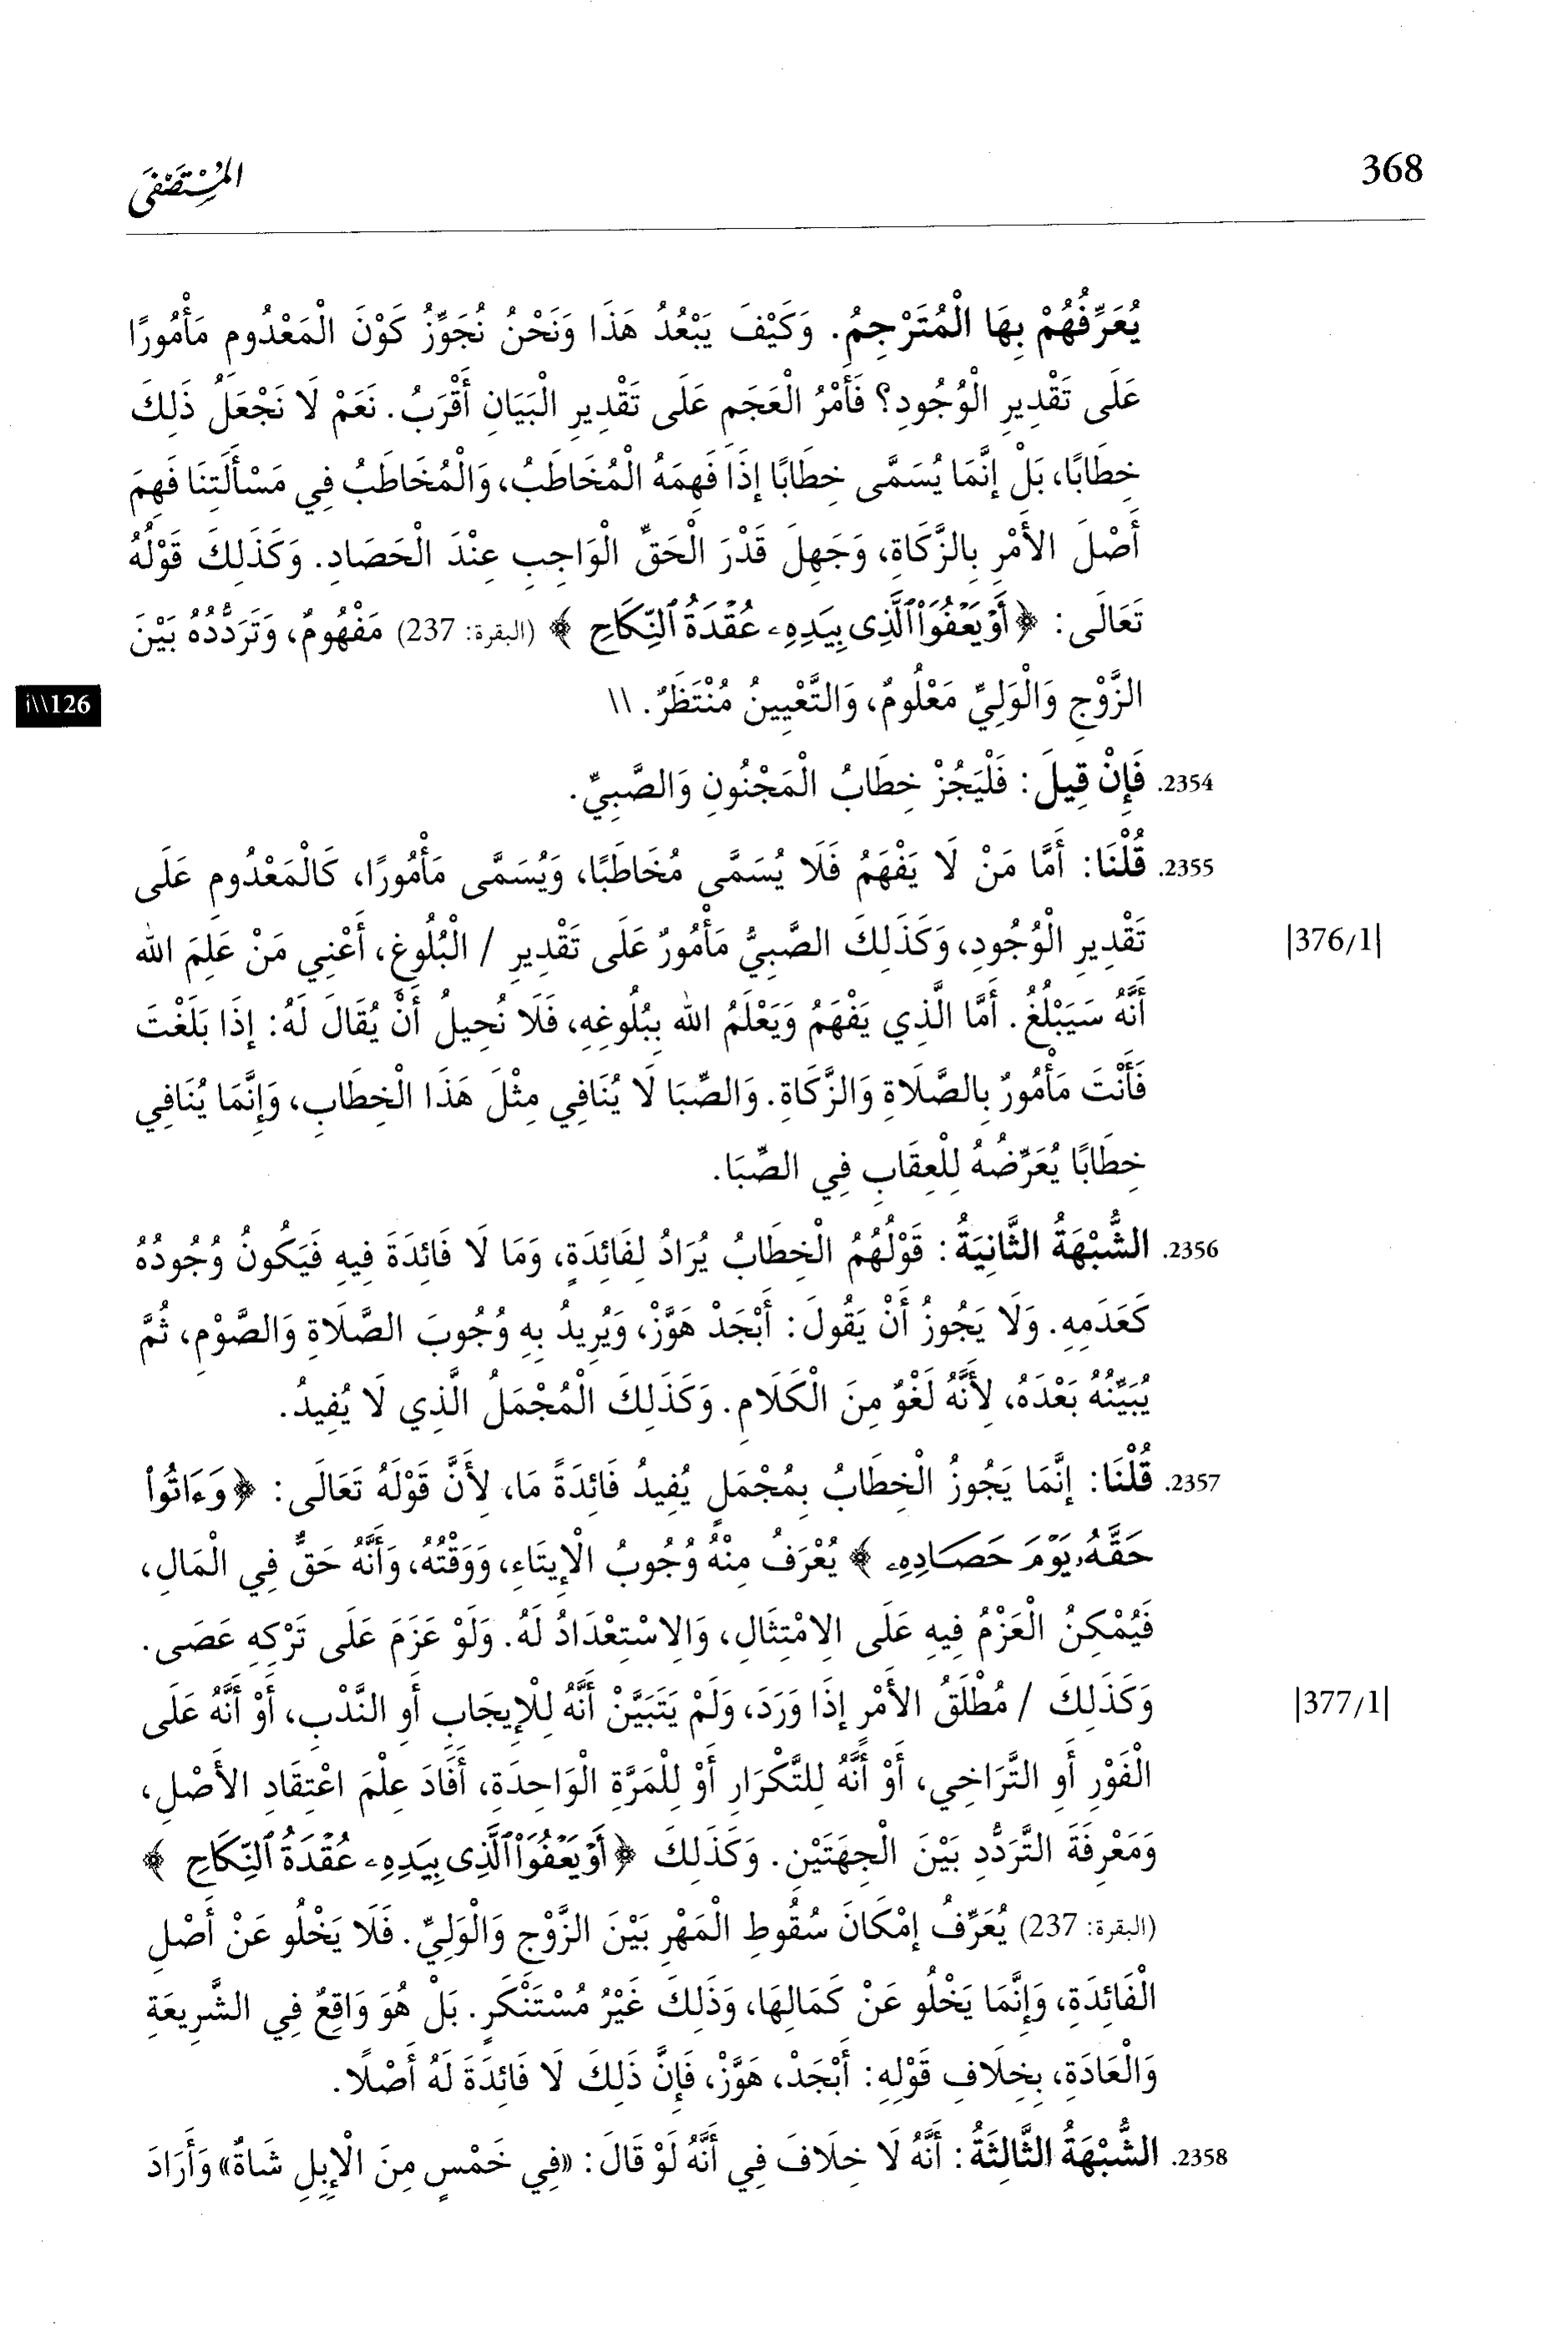 368
المُسْتَصْفَى
يُعَرِّفُهُمْ بِهَا الْمُتَرْجِمُ. وَكَيْفَ يَبْعُدُ هَذَا وَنَحْنُ نُجَوِّزُ كَوْنَ الْمَعْدُومِ مَأْمُورًا
عَلَى تَقْدِيرِ الْوُجُودِ؟ فَأَمْرُ الْعَجَمِ عَلَى تَقْدِيرِ الْبَيَانِ أَقْرَبُ. نَعَمْ لَا نَجْعَلُ ذَلِكَ
خِطَابًا، بَلْ إِنَّمَا يُسَمَّى خِطَابًا إِذَا فَهِمَهُ الْمُخَاطَبُ، وَالْمُخَاطَبُ فِي مَسْأَلَتِنَا فَهِمَ
أَصْلَ الأَمْرِ بِالزَّكَاةِ، وَجَهِلَ قَدْرَ الْحَقِّ الْوَاجِبِ عِنْدَ الْحَصَادِ. وَكَذَلِكَ قَوْلُهُ
تَعَالَى: ﴿أَوْ يَعْفُوَاْ ٱلَّذِى بِيَدِهِۦ عُقْدَةُ ٱلنِّكَاحِ ﴾ (البقرة: 237) مَفْهُومٌ، وَتَرَدُّدُهُ بَيْنَ
الزَّوْجِ وَالْوَلِيِّ مَعْلُومٌ، وَالتَّعْيِينُ مُنْتَظَرٌ. \\
126\\أ
2354. فَإِنْ قِيلَ: فَلْيَجُزْ خِطَابُ الْمَجْنُونِ وَالصَّبِيِّ.
2355. قُلْنَا: أَمَّا مَنْ لَا يَفْهَمُ فَلَا يُسَمَّى مُخَاطَبًا، وَيُسَمَّى مَأْمُورًا، كَالْمَعْدُومِ عَلَى
تَقْدِيرِ الْوُجُودِ، وَكَذَلِكَ الصَّبِيُّ مَأْمُورٌ عَلَى تَقْدِيرِ / الْبُلُوغِ، أَعْنِي مَنْ عَلِمَ الله
|376/1|
أَنَّهُ سَيَبْلُغُ. أَمَّا الَّذِي يَفْهَمُ وَيَعْلَمُ الله بِبُلُوغِهِ، فَلَا نُحِيلُ أَنْ يُقَالَ لَهُ: إِذَا بَلَغْتَ
فَأَنْتَ مَأْمُورٌ بِالصَّلَاةِ وَالزَّكَاةِ. وَالصِّبَا لَا يُنَافِي مِثْلَ هَذَا الْخِطَابِ، وَإِنَّمَا يُنَافِي
خِطَابًا يُعَرِّضُهُ لِلْعِقَابِ فِي الصِّبَا.
2356. الشُّبْهَةُ الثَّانِيَةُ: قَوْلُهُمُ الْخِطَابُ يُرَادُ لِفَائِدَةٍ، وَمَا لَا فَائِدَةَ فِيهِ فَيَكُونُ وُجُودُهُ
كَعَدَمِهِ. وَلَا يَجُوزُ أَنْ يَقُولَ: أَبْجَدْ هَوَّزْ، وَيُرِيدُ بِهِ وُجُوبَ الصَّلَاةِ وَالصَّوْمِ، ثُمَّ
يُبَيِّنُهُ بَعْدَهُ، لِأَنَّهُ لَغْوٌ مِنَ الْكَلَامِ. وَكَذَلِكَ الْمُجْمَلُ الَّذِي لَا يُفِيدُ.
2357. قُلْنَا: إِنَّمَا يَجُوزُ الْخِطَابُ بِمُجْمَلٍ يُفِيدُ فَائِدَةً مَا، لِأَنَّ قَوْلَهُ تَعَالَى: ﴿وَءَاتُواْ
حَقَّهُۥ يَوْمَ حَصَادِهِۦ ﴾ يُعْرَفُ مِنْهُ وُجُوبُ الْإِيتَاءِ، وَوَقْتُهُ، وَأَنَّهُ حَقٌّ فِي الْمَالِ،
فَيُمْكِنُ الْعَزْمُ فِيهِ عَلَى الِامْتِثَالِ، وَالِاسْتِعْدَادُ لَهُ. وَلَوْ عَزَمَ عَلَى تَرْكِهِ عَصَى.
وَكَذَلِكَ / مُطْلَقُ الأَمْرِ إِذَا وَرَدَ، وَلَمْ يَتَبَيَّنْ أَنَّهُ لِلْإِيجَابِ أَوِ النَّدْبِ، أَوْ أَنَّهُ عَلَى
|377/1|
الْفَوْرِ أَوِ التَّرَاخِي، أَوْ أَنَّهُ لِلتَّكْرَارِ أَوْ لِلْمَرَّةِ الْوَاحِدَةِ، أَفَادَ عِلْمَ اعْتِقَادِ الأَصْلِ،
وَمَعْرِفَةَ التَّرَدُّدِ بَيْنَ الْجِهَتَيْنِ. وَكَذَلِكَ ﴿أَوْ يَعْفُوَاْ ٱلَّذِى بِيَدِهِۦ عُقْدَةُ ٱلنِّكَاحِ ﴾
(البقرة: 237) يُعَرِّفُ إِمْكَانَ سُقُوطِ الْمَهْرِ بَيْنَ الزَّوْجِ وَالْوَلِيِّ. فَلَا يَخْلُو عَنْ أَصْلِ
الْفَائِدَةِ، وَإِنَّمَا يَخْلُو عَنْ كَمَالِهَا، وَذَلِكَ غَيْرُ مُسْتَنْكَرٍ. بَلْ هُوَ وَاقِعٌ فِي الشَّرِيعَةِ
وَالْعَادَةِ، بِخِلَافِ قَوْلِهِ: أَبْجَدْ، هَوَّزْ، فَإِنَّ ذَلِكَ لَا فَائِدَةَ لَهُ أَصْلًا.
2358. الشُّبْهَةُ الثَّالِثَةُ: أَنَّهُ لَا خِلَافَ فِي أَنَّهُ لَوْ قَالَ: «فِي خَمْسٍ مِنَ الْإِبِلِ شَاةٌ» وَأَرَادَ